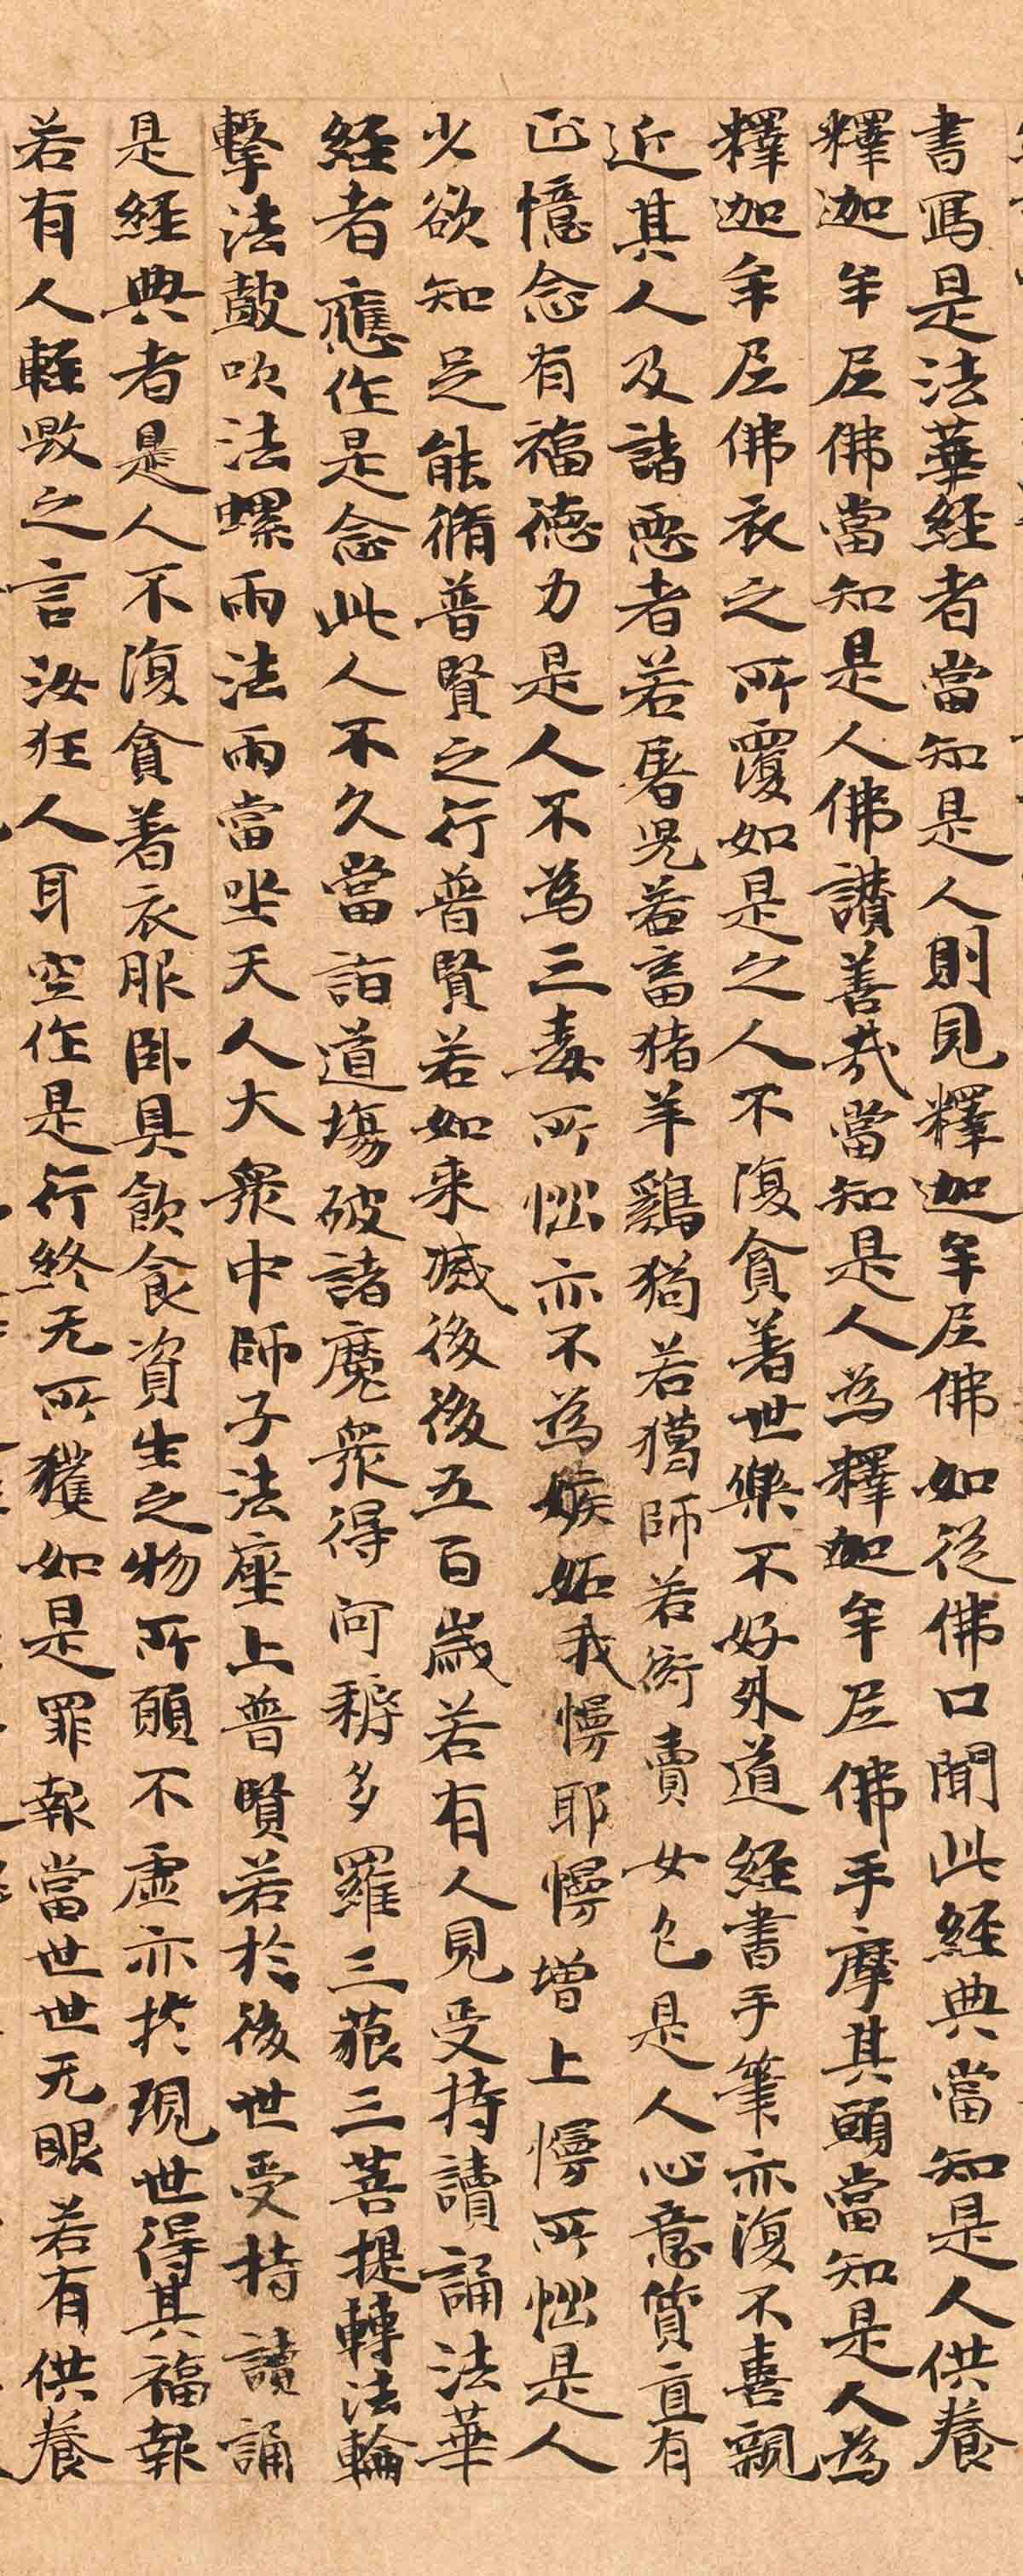 書寫是法華経者當知是人則見釋迦牟尼佛如従佛口聞此経典當知是人供養
釋迦牟尼佛當知是人佛讃善哉當知是人為釋迦牟尼佛手摩其頭當知是人為
釋迦牟尼佛衣之所覆如是之人不復貪著世樂不好外道経書手筆亦復不憙親
近其人及諸惡者若屠兒若畜猪羊鷄狗若獦師若衒賣女色是人心意質直有
正憶念有福徳力是人不為三毒所惱亦不為嫉妬我慢耶慢增上慢所惱是人
少欲知足能脩普賢之行普賢若如来滅後後五百歲若有人見受持讀誦法華
経者應作是念此人不久當詣道場破諸魔衆得阿耨多羅三藐三菩提轉法輪
擊法鼓吹法螺雨法雨當坐天人大衆中師子法座上普賢若於後世受持讀誦
是経典者是人不復貪著衣服卧具飲食資生之物所願不虛亦於現世得其福報
若有人輕毀之言汝狂人耳空作是行終无所獲如是罪報當世世无眼若有供養